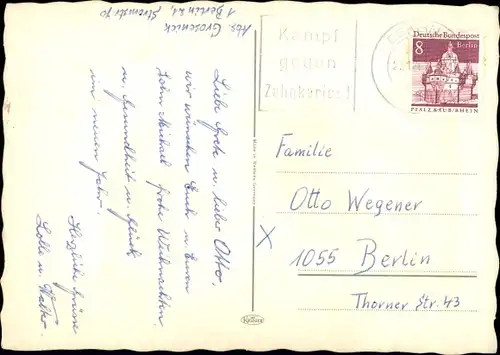 Abs. Grosenick
1 Berlin 21, Stromstr. 70
Liebe Grete u. lieber Otto,
wir wünschen Euch u. Euren
lieben Michael frohe Weihnachten
u. Gesundheit u. Glück
im neuen Jahr.
Herzliche Grüsse
Lotte u. Walter.
Kampf
gegen
Zahnkaries!
Deutsche Bundespost
8
Berlin
PFALZ KAUB/RHEIN
Familie
Otto Wegener
1055 Berlin
Thorner Str. 43
X
Krüger